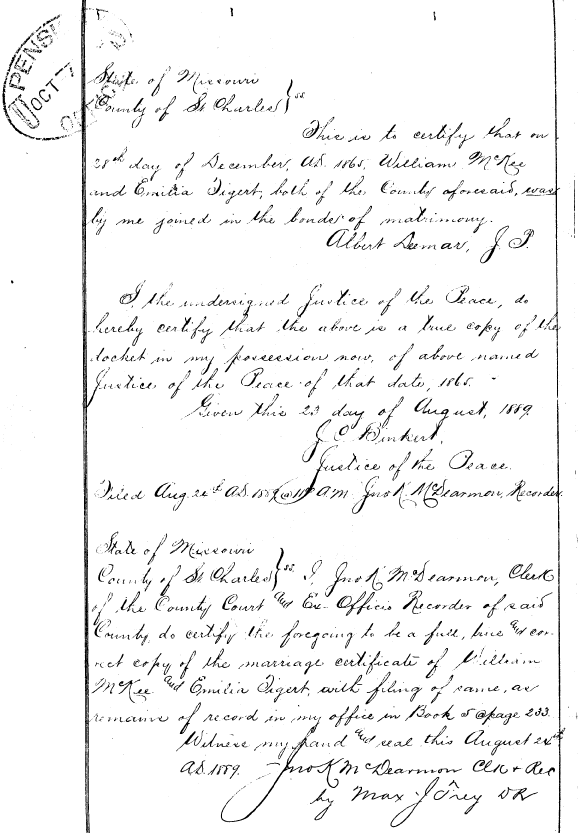 PENSI
U OCT 7
OFFICE
State of Missouri
County of St Charles } ss.
This is to certify that on
28th day of December, AD. 1865, William McKee
and Emilia Tigert, both of the County aforesaid, was
by me joined in the bonds of matrimony.
Albert Deemar, J. P.
I, the undersigned Justice of the Peace, do
hereby certify that the above is a true copy of the
docket in my possession now, of above named
Justice of the Peace of that date, 1865.
Given this 23 day of August, 1889.
J. C. Binkert,
Justice of the Peace.
Filed Aug. 24th AD. 1889 @ A.M. Jno K McDearmon, Recorder
State of Missouri
County of St Charles } ss. I, Jno K McDearmon, Clerk
of the County Court and Ex-Officio Recorder of said
County, do certify the foregoing to be a full, true and cor-
rect copy of the marriage certificate of William
McKee and Emilia Tigert, with filing of same, as
remains of record in my office in Book 5 @ page 233.
Witness my hand and seal this August 24th
AD. 1889. Jno K McDearmon Clk & Rec
by Max J Frey DR